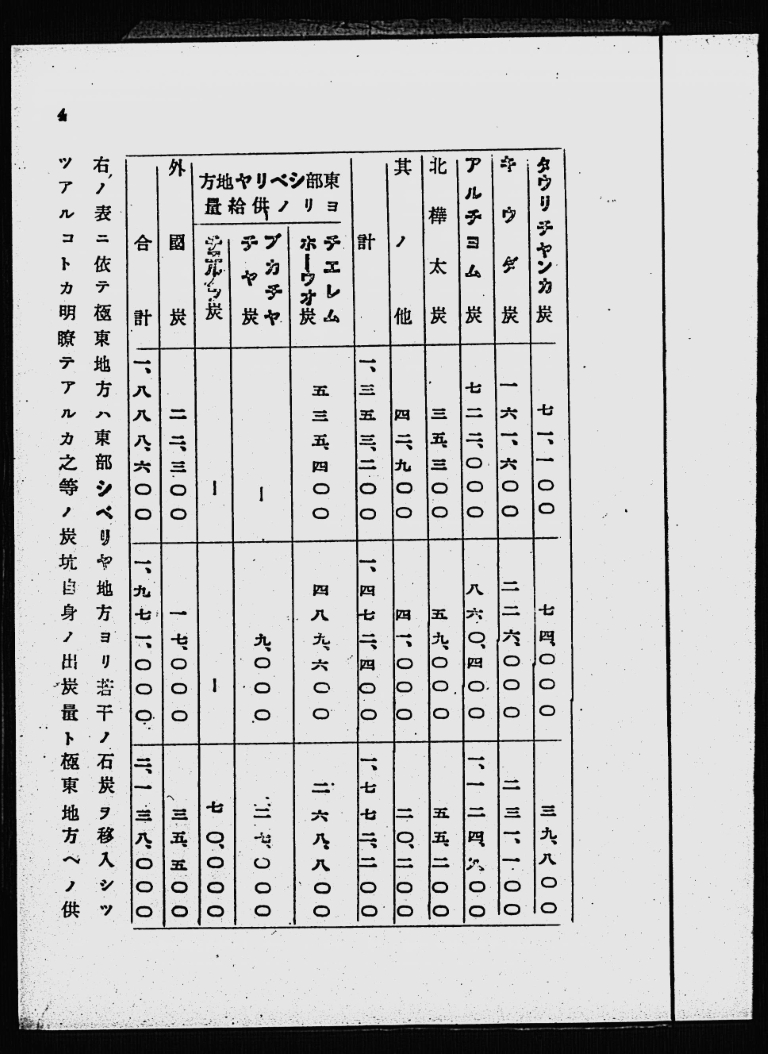 タウリチヤンカ炭 七一、一〇〇 七四、〇〇〇 三九、八〇〇
キウダ炭 一六一、六〇〇 二二六、〇〇〇 二三一、一〇〇
アルチヨム炭 七二二、〇〇〇 八六〇、四〇〇
北樺太炭 三五、三〇〇 五九、〇〇〇 五五、二〇〇
其ノ他 四二、九〇〇 四一、〇〇〇 二〇、二〇〇
計 一、三五三、二〇〇 一、四七二、四〇〇 一、七七二、二〇〇
東部シベリヤ地方
ヨリノ供給量
チエレムホーウオ炭 五三五、四〇〇 四八九、六〇〇 二六八、八〇〇
ブカチヤチヤ炭 ー 九、〇〇〇 二七、〇〇〇
炭 ー ー 七〇、〇〇〇
外國炭 二二、三〇〇 一七、〇〇〇 三五、五〇〇
合計 一、八八八、六〇〇 一、九七一、〇〇〇 二、一三八、〇〇〇
右ノ表ニ依テ極東地方ハ東部シベリヤ地方ヨリ若干ノ石炭ヲ移入シツ
ツアルコトカ明瞭テアルカ之等ノ炭坑自身ノ出炭量ト極東地方ヘノ供
4